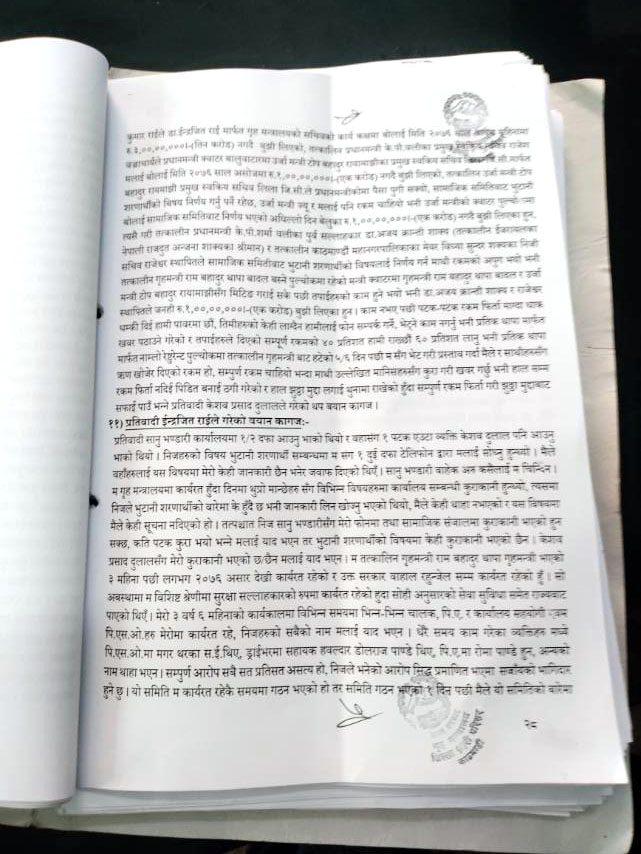 कुमार राईले डा.ईन्द्रजित राई मार्फत गृह मन्त्रालयको सचिवको कार्य कक्षमा बोलाई मिति २०७६ साल
रु.३,००,००,०००।-(तिन करोड) नगदै बुझी लिएको, तत्कालिन प्रधानमन्त्री के.पी.वलीका प्रमुख स्वकिय राजेश
बज्राचार्यले प्रधानमन्त्री क्वाटर बालुवाटारमा उर्जा मन्त्री टोप बहादुर रायामाझीका प्रमुख स्वकिय सचिव जि.सी.मार्फत
मलाई बोलाई मिति २०७६ साल असोजमा रु.१,००,००,०००।-(एक करोड) नगदै बुझी लिएको, तत्कालिन उर्जा मन्त्री टोप
बहादुर रायमाझी प्रमुख स्वकिय सचिव लिला जि.सी.ले प्रधानमन्त्रीकोमा पैसा पुगी सक्यो, सामाजिक समितिबाट भुटानी
शरणार्थीको विषय निर्णय गर्नु पर्ने रहेछ, उर्जा मन्त्री ज्यू र मलाई पनि रकम चाहियो भनी उर्जा मन्त्रीको क्वाटर पुल्चोकमा
बोलाई सामाजिक समितिबाट निर्णय भएको अघिल्लो दिन बेलुका रु.१,००,००,०००।-(एक करोड) नगदै बुझी लिएका हुन्,
त्यसै गरी तत्कालिन प्रधानमन्त्री के.पी.शर्मा वलीका पुर्व सल्लाहकार डा.अजय क्रान्ती शाक्य (तत्कालिन ईजरायलका
नेपाली राजदुत अन्जना शाक्यका श्रीमान) र तत्कालिन काठमाण्डौं महानगरपालिकाका मेयर बिध्या सुन्दर शाक्यका निजी
सचिव राजेश्वर स्थापितले सामाजिक समितिबाट भुटानी शरणार्थीको विषयलाई निर्णय गर्न माथी रकमको अपुग भयो भनी
तत्कालिन गृहमन्त्री राम बहादुर थापा बादल बस्ने पुल्चोकमा रहेको मन्त्री क्वाटरमा गृहमन्त्री राम बहादुर थापा बादल र उर्जा
मन्त्री टोप बहादुर रायामाझीसँग मिटिङ गराई सके पछी तपाईहरुको काम हुने भयो भनी डा.अजय क्रान्ती शाक्य र राजेश्वर
स्थापितले जनही रु.१,००,००,०००।-(एक करोड) बुझी लिएका हुन्। काम नभए पछी पटक-पटक रकम फिर्ता माग्दा धाक
धम्की दिई हामी पावरमा छौं, तिमीहरुको केही लाग्दैन हामीलाई फोन सम्पर्क गर्ने, भेट्ने काम नगर्नु भनी प्रतिक थापा मार्फत
खबर पठाउने गरेको र तपाईहरुले दिएको सम्पूर्ण रकमको ४० प्रतिशत हामी राख्छौं ६० प्रतिशत लानु भनी प्रतिक थापा
मार्फत नाम्लो रेष्टुरेन्ट पुल्चोकमा तत्कालीन गृहमन्त्री बाट हटेको ५/६ दिन पछी म सँग भेट गरी प्रस्ताव गर्दा मैले र साथीहरुसँग
ऋण खोजेर दिएको रकम हो, सम्पुर्ण रकम चाहियो भन्दा माथी उल्लेखित मानिसहरुसँग कुरा गरी खवर गर्छु भनी हाल सम्म
रकम फिर्ता नदिई पिडित बनाई ठगी गरेको र हाल झुठ्ठा मुद्दा लगाई थुनामा राखेको हुँदा सम्पूर्ण रकम फिर्ता गरी झुठ्ठा मुद्दाबाट
सफाई पाउँ भन्ने प्रतिवादी केशव प्रसाद दुलालले गरेको थप बयान कागज।
११) प्रतिवादी ईन्द्रजित राईले गरेको वयान कागजः-
प्रतिवादी सानु भण्डारी कार्यालयमा १/२ दफा आउनु भाको थियो र वहासंग १ पटक एउटा व्यक्ति केशव दुलाल पनि आउनु
भाको थियो। निजहरुको विषय भुटानी शरणार्थी सम्बन्धमा म संग १ दुई दफा टेलिफोन द्वारा मलाई सोध्नु हुन्थ्यो। मैले
वहाँहरुलाई यस विषयमा मेरो केही जानकारी छैन भनेर जवाफ दिएको थिएँ। सानु भण्डारी वाहेक अरु कसैलाई म चिन्दिन।
म गृह मन्त्रालयमा कार्यरत हुँदा दिनमा थुप्रो मान्छेहरु सँग विभिन्न विषयहरुमा कार्यालय सम्बन्धी कुराकानी हुन्थ्यो, त्यसमा
निजले भुटानी शरणार्थीको वारेमा के हुँदै छ भनी जानकारी लिन खोज्नु भएको थियो, मैले केही थाहा नभएको र यस विषयमा
मैले केही सूचना नदिएको हो। तत्पश्चात निज सानु भण्डारीसँग मेरो फोनमा तथा सामाजिक संजालमा कुराकानी भएको हुन
सक्छ, कति पटक कुरा भयो भन्ने मलाई याद भएन तर भुटानी शरणार्थीको विषयमा केही कुराकानी भएको छैन। केशव
प्रसाद दुलालसँग मेरो कुराकानी भएको छ/छैन मलाई याद भएन। म तत्कालिन गृहमन्त्री राम बहादुर थापा गृहमन्त्री भएको
३ महिना पछी लगभग २०७६ असार देखी कार्यरत रहेको र उक्त सरकार वाहाल रहुन्जेल सम्म कार्यरत रहेको हुँ। सो
अवस्थामा म विशिष्ट श्रेणीमा सुरक्षा सल्लाहकारको रुपमा कार्यरत रहेको हुदा सोही अनुसारको सेवा सुविधा समेत राज्यवाट
पाएको थिएँ। मेरो ३ वर्ष ६ महिनाको कार्यकालमा विभिन्न समयमा भिन्न-भिन्न चालक, पि.ए. र कार्यालय सहयोगी एवम
पि.एस.ओ.हरु मेरोमा कार्यरत रहे, निजहरुको सबैको नाम मलाई याद भएन। धेरै समय काम गरेका व्यक्तिहरु मध्ये
पि.एस.ओ.मा मगर थरका स.ई.थिए, ड्राईभरमा सहायक हवल्दार डोलराज पाण्डे थिए, पि.ए.मा रोमा पाण्डे हुन्, अन्यको
नाम थाहा भएन। सम्पुर्ण आरोप सबै सत प्रतिसत असत्य हो, निजले भनेको आरोप सिद्ध प्रमाणित भएमा सजाँयको भागिदार
हुने छु। यो समिति म कार्यरत रहेकै समयमा गठन भएको हो तर समिति गठन भएको १ दिन पछी मैले यो समितिको बारेमा
२८